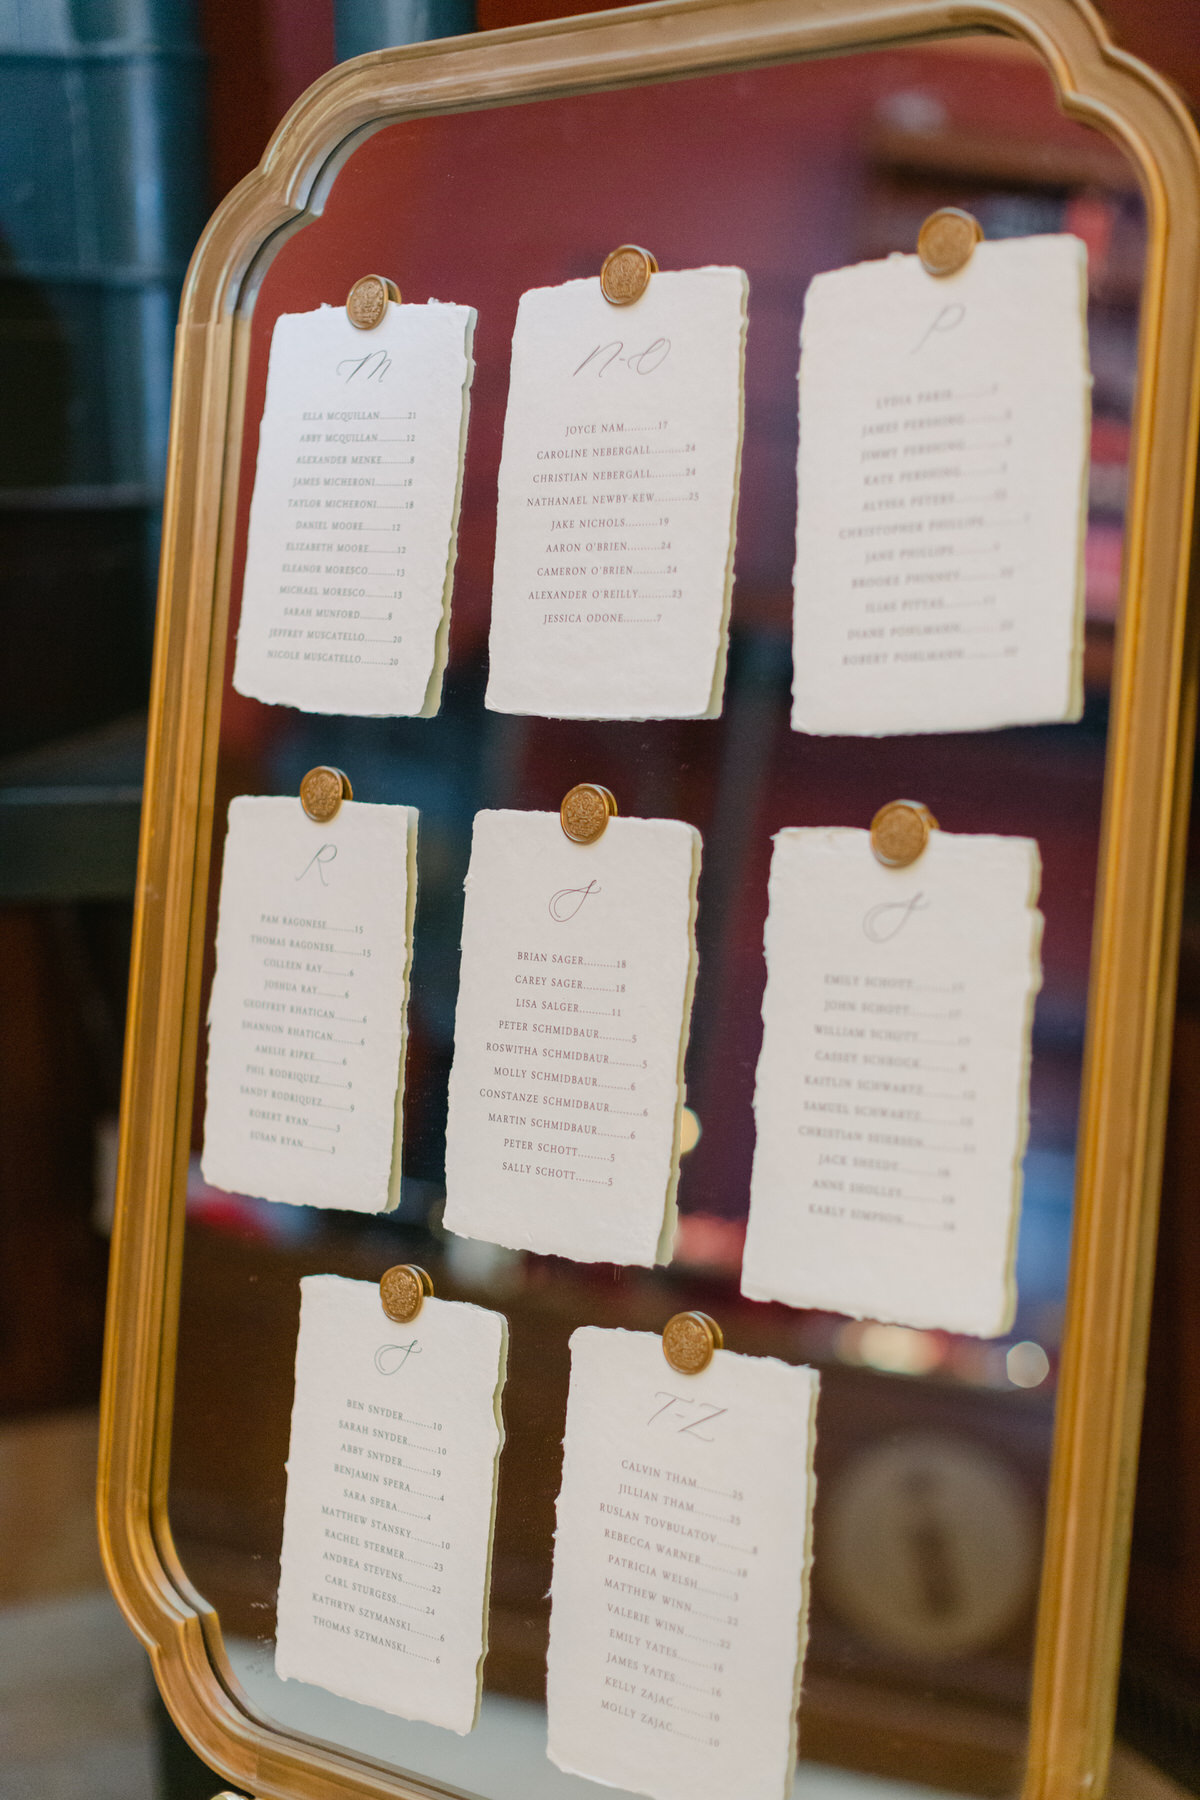 M
ELLA MCQUILLAN..........21
ABBY MCQUILLAN..........12
ALEXANDER MENKE..........8
JAMES MICHERONI..........18
TAYLOR MICHERONI..........18
DANIEL MOORE..........12
ELIZABETH MOORE..........12
ELEANOR MORESCO..........13
MICHAEL MORESCO..........13
SARAH MUNFORD..........8
JEFFREY MUSCATELLO..........20
NICOLE MUSCATELLO..........20
N-O
JOYCE NAM..........17
CAROLINE NEBERGALL..........24
CHRISTIAN NEBERGALL..........24
NATHANAEL NEWBY-KEW..........25
JAKE NICHOLS..........19
AARON O'BRIEN..........24
CAMERON O'BRIEN..........24
ALEXANDER O'REILLY..........23
JESSICA ODONE..........7
P
LYDIA PARIS
JAMES PERSHING
JIMMY PERSHING
KATE PERSHING
ALYSSA PETERS
CHRISTOPHER PHILLIPS
JANE PHILLIPS
BROOKE PHINNEY
ILIAS PITERS
DIANE POHLMANN
ROBERT POHLMANN
R
PAM RAGONESE..........15
THOMAS RAGONESE..........15
COLLEEN RAY..........6
JOSHUA RAY..........6
GEOFFREY RHATICAN..........6
SHANNON RHATICAN..........6
AMELIE RIPKE..........6
PHIL RODRIQUEZ..........9
SANDY RODRIQUEZ..........9
ROBERT RYAN..........3
SUSAN RYAN..........3
S
BRIAN SAGER..........18
CAREY SAGER..........18
LISA SALGER..........11
PETER SCHMIDBAUR..........5
ROSWITHA SCHMIDBAUR..........5
MOLLY SCHMIDBAUR..........6
CONSTANZE SCHMIDBAUR..........6
MARTIN SCHMIDBAUR..........6
PETER SCHOTT..........5
SALLY SCHOTT..........5
S
EMILY SCHOTT
JOHN SCHOTT
WILLIAM SCHOTT
CASSEY SCHROCK
KAITLIN SCHWARTZ
SAMUEL SCHWARTZ
CHRISTIAN SEIERSEN
JACK SHEEDY
ANNE SHOLLEY
KARLY SIMPSON
S
BEN SNYDER..........10
SARAH SNYDER..........10
ABBY SNYDER..........19
BENJAMIN SPERA..........4
SARA SPERA..........4
MATTHEW STANSKY..........10
RACHEL STERMER..........23
ANDREA STEVENS..........22
CARL STURGESS..........24
KATHRYN SZYMANSKI..........6
THOMAS SZYMANSKI..........6
T-Z
CALVIN THAM..........25
JILLIAN THAM..........25
RUSLAN TOVBULATOV..........8
REBECCA WARNER..........18
PATRICIA WELSH..........3
MATTHEW WINN..........22
VALERIE WINN..........22
EMILY YATES..........16
JAMES YATES..........16
KELLY ZAJAC..........10
MOLLY ZAJAC..........10